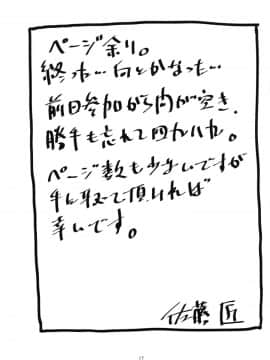 ページ余り。
終った…何とかなった…
前回参加から間が空き、
勝手も忘れて四九八九。
ページ数も少ないですが
手に取って頂ければ
幸いです。
佐藤 匠